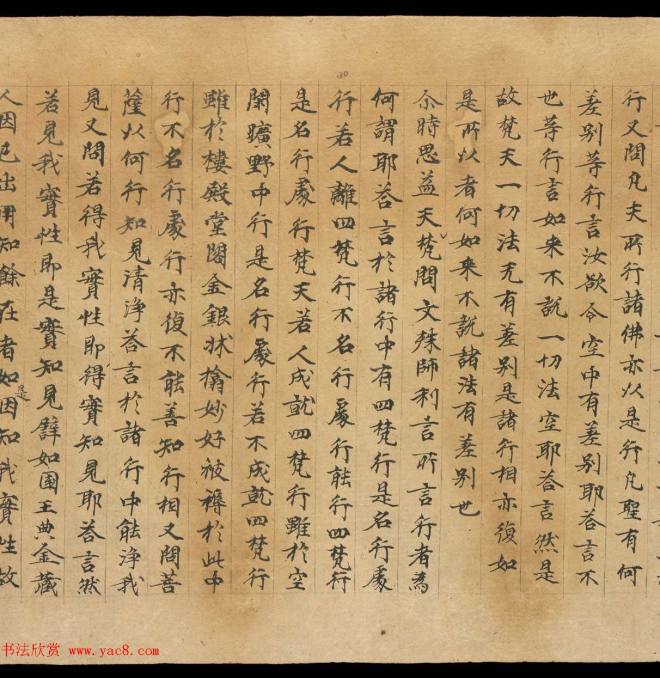 行又問凡夫所行諸佛亦以是行凡聖有何
差别等行言汝欲令空中有差别耶荅言不
也等行言如来不說一切法空耶荅言然是
故梵天一切法无有差别是諸行相亦復如
是所以者何如来不說諸法有差别也
尒時思益天梵問文殊師利言所言行者為
何謂耶荅言於諸行中有四梵行是名行處
行若人離四梵行不名行處行能行四梵行
是名行處行梵天若人成就四梵行雖於空
閑曠野中行是名行處行若不成就四梵行
雖於樓殿堂閣金銀牀榻妙好被褥於此中
行不名行處行亦復不能善知行相又問菩
薩以何行知見清淨荅言於諸行中能淨我
見又問若得我實性即得實知見耶荅言然
若見我實性即是實知見譬如國王典金藏
人因已出用知餘在者如是因知我實性故
书法欣赏 www.yac8.com